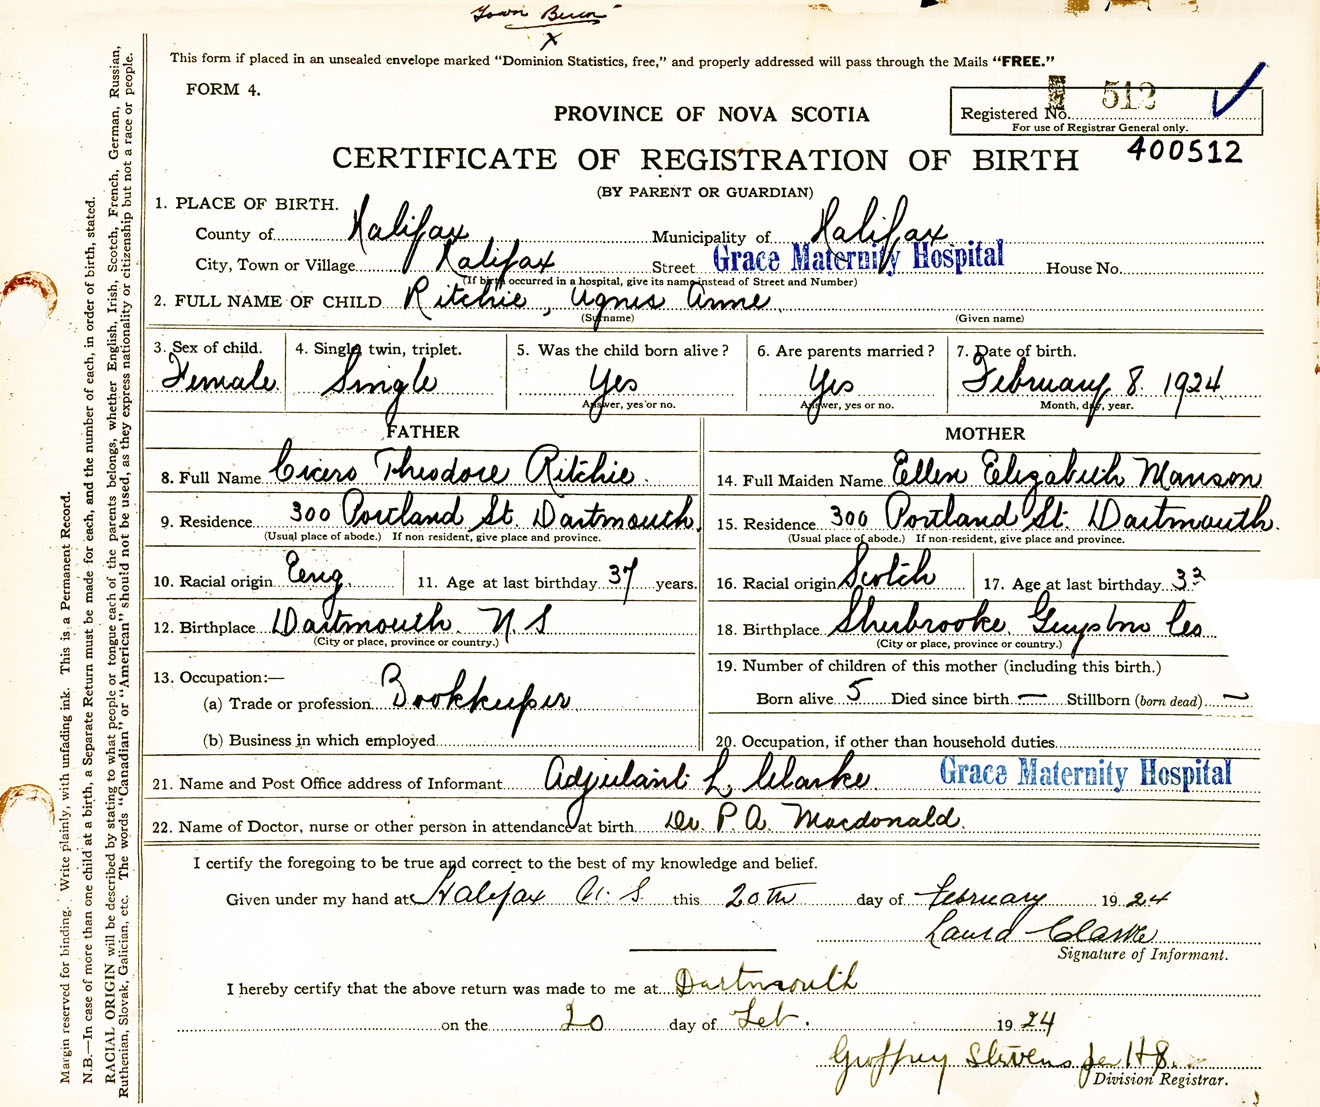 Town Buren
X
This form if placed in an unsealed envelope marked "Dominion Statistics, free," and properly addressed will pass through the Mails "FREE."
FORM 4.
PROVINCE OF NOVA SCOTIA
Registered No. 512
For use of Registrar General only.
CERTIFICATE OF REGISTRATION OF BIRTH 400512
(BY PARENT OR GUARDIAN)
1. PLACE OF BIRTH.
County of Halifax Municipality of Halifax
City, Town or Village Halifax Street Grace Maternity Hospital House No.
(If birth occurred in a hospital, give its name instead of Street and Number)
2. FULL NAME OF CHILD Ritchie, Agnes Anne
(Surname) (Given name)
3. Sex of child. 4. Single, twin, triplet. 5. Was the child born alive? 6. Are parents married? 7. Date of birth.
Female Single Yes Yes February 8. 1924
Answer, yes or no. Answer, yes or no. Month, day, year.
FATHER MOTHER
8. Full Name Cicero Theodore Ritchie. 14. Full Maiden Name Ellen Elizabeth Manson
9. Residence 300 Portland St. Dartmouth. 15. Residence 300 Portland St. Dartmouth.
(Usual place of abode.) If non resident, give place and province. (Usual place of abode.) If non-resident, give place and province.
10. Racial origin Eng. 11. Age at last birthday 37 years. 16. Racial origin Scotch 17. Age at last birthday 33
12. Birthplace Dartmouth N S 18. Birthplace Sherbrooke, Guysboro Co
(City or place, province or country.) (City or place, province or country.)
13. Occupation:— 19. Number of children of this mother (including this birth.)
(a) Trade or profession Bookkeeper Born alive 5 Died since birth — Stillborn (born dead) —
(b) Business in which employed 20. Occupation, if other than household duties
21. Name and Post Office address of Informant Adjutant L Clarke Grace Maternity Hospital
22. Name of Doctor, nurse or other person in attendance at birth Dr. P. A. Macdonald.
I certify the foregoing to be true and correct to the best of my knowledge and belief.
Given under my hand at Halifax N. S. this 20th day of February 1924
Laura Clarke
Signature of Informant.
I hereby certify that the above return was made to me at Dartmouth
on the 20 day of Feb. 1924
Geoffrey Stevens per H S.
Division Registrar.
Margin reserved for binding. Write plainly, with unfading ink. This is a Permanent Record.
N.B.—In case of more than one child at a birth, a Separate Return must be made for each, and the number of each, in order of birth, stated.
RACIAL ORIGIN will be described by stating to what people or tongue each of the parents belongs, whether English, Irish, Scotch, French, German, Russian,
Ruthenian, Slovak, Galician, etc. The words "Canadian" or "American" should not be used, as they express nationality or citizenship but not a race or people.